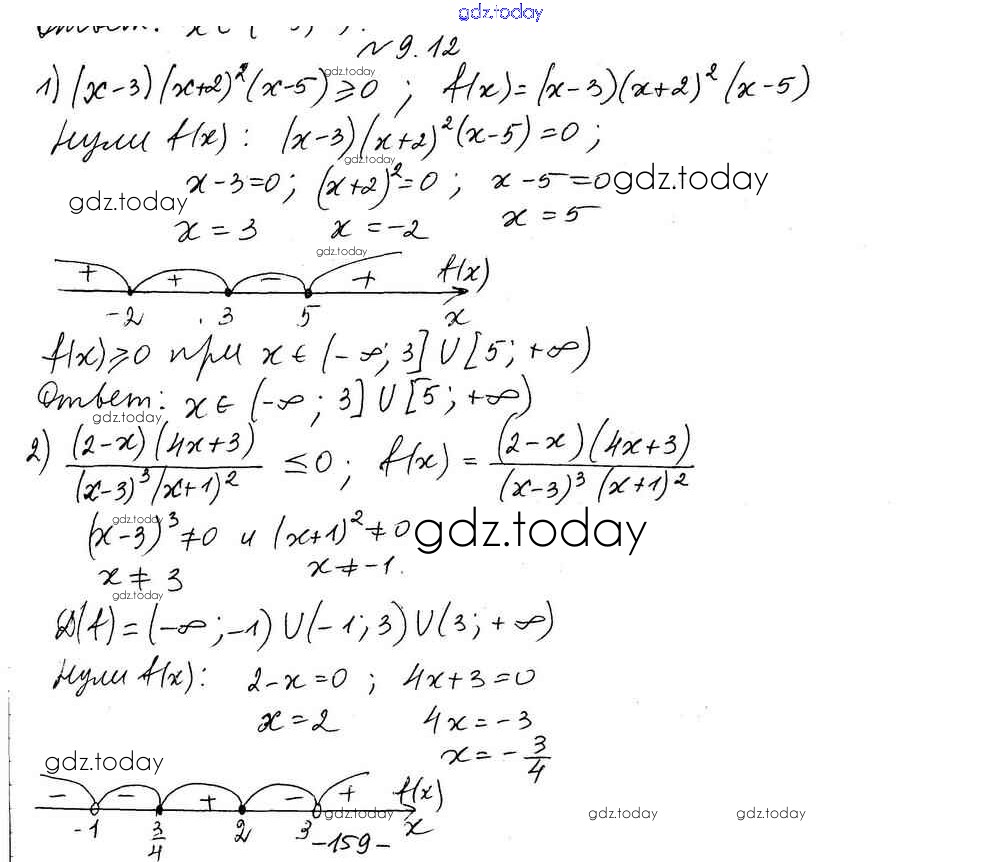 gdz.today
Ответ: x ∈ (
N 9.12
1) (x-3)(x+2)²(x-5) ≥ 0 ; f(x) = (x-3)(x+2)²(x-5)
gdz.today
Нули f(x) : (x-3)(x+2)²(x-5) = 0 ;
gdz.today
x-3=0 ; (x+2)²=0 ; x-5=0 gdz.today
gdz.today
x = 3 x = -2 x = 5
gdz.today
+ + - + f(x)
-2 3 5 x
f(x) ≥ 0 при x ∈ (-∞; 3] ∪ [5; +∞)
Ответ: x ∈ (-∞; 3] ∪ [5; +∞)
gdz.today
2) (2-x)(4x+3)/((x-3)³(x+1)²) ≤ 0 ; f(x) = (2-x)(4x+3)/((x-3)³(x+1)²)
gdz.today
(x-3)³ ≠ 0 и (x+1)² ≠ 0 gdz.today
x ≠ 3 x ≠ -1.
gdz.today
D(f) = (-∞; -1) ∪ (-1; 3) ∪ (3; +∞)
Нули f(x) : 2-x=0 ; 4x+3=0
x = 2 4x = -3
x = -3/4
gdz.today
- - + - + f(x)
gdz.today gdz.today gdz.today
-1 3/4 2 3 x
-159-